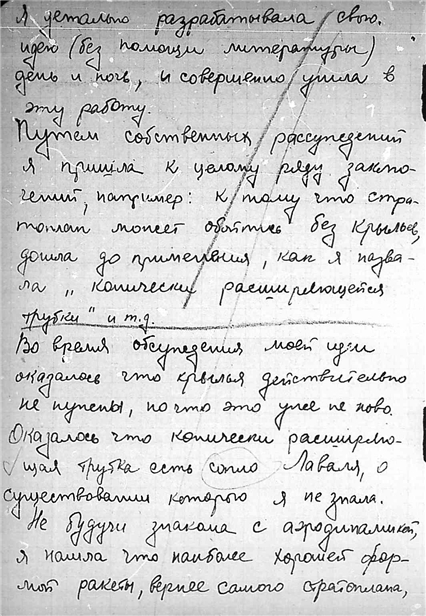 Я детально разрабатывала свою
идею (без помощи литературы)
день и ночь, и совершенно ушла в
эту работу.
Путем собственных рассуждений
я пришла к целому ряду заклю-
чений, например: к тому что стра-
топлан может обойтись без крыльев,
дошла до применения, как я назва-
ла „конически расширяющейся
трубки" и т.д
Во время обсуждения моей идеи
оказалось что крылья действительно
не нужны, но что это уже не ново.
Оказалось что конически расширяю-
щая трубка есть сопло Лаваля, о
существовании которого я не знала.
Не будучи знакома с аэродинамикой,
я нашла что наиболее хорошей фор-
мой ракеты, вернее самого стратоплана,